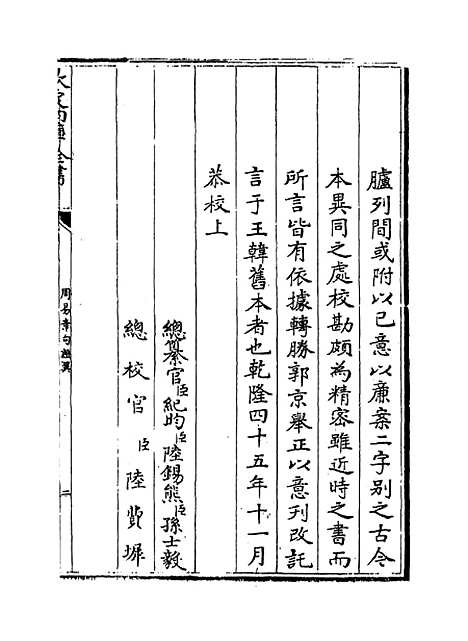 臚列間或附以己意以廉案二字别之古今
本異同之處校勘頗為精宻雖近時之書而
所言皆有依據轉勝郭京舉正以意刋改託
言于王韓舊本者也乾隆四十五年十一月
恭校上
總纂官臣紀昀臣陸錫熊臣孫士毅
總校官臣陸費墀
欽定四庫全書
周易章句證異
二